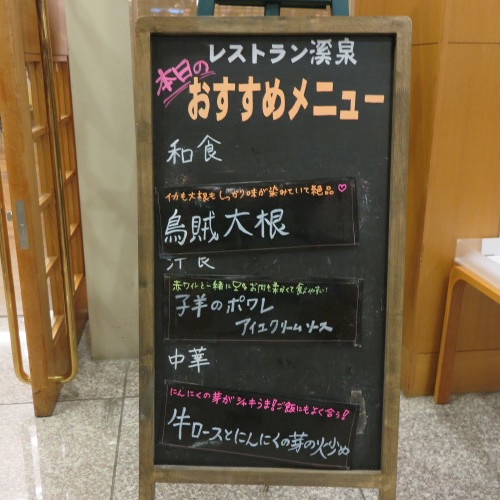 レストラン溪泉
本日の
おすすめメニュー
和食
イカも大根もしっかり味が染みていて絶品♡
烏賊大根
洋食
赤ワインと一緒に♪お肉も柔かくて食べやすい!
子羊のポワレ
アイユクリームソース
中華
にんにくの芽がシャキうま!ご飯にもよく合う!
牛ロースとにんにくの芽の火炒め